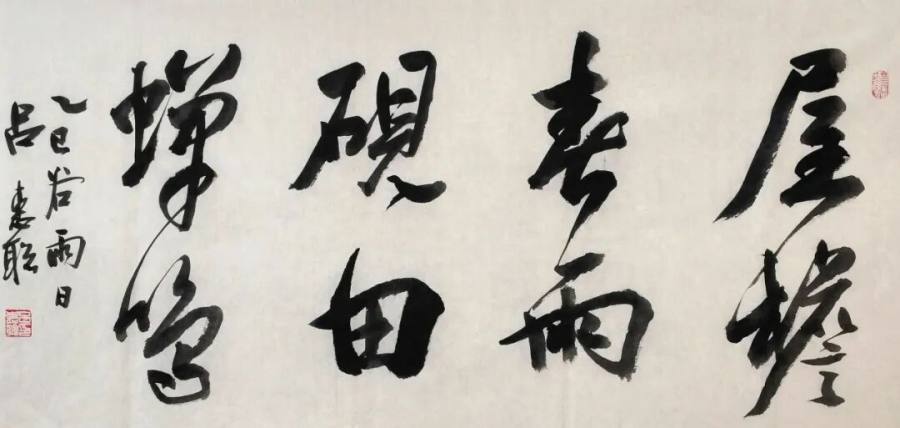 屋檐
春雨
砚田
蝉鸣
乙巳谷雨日
吕